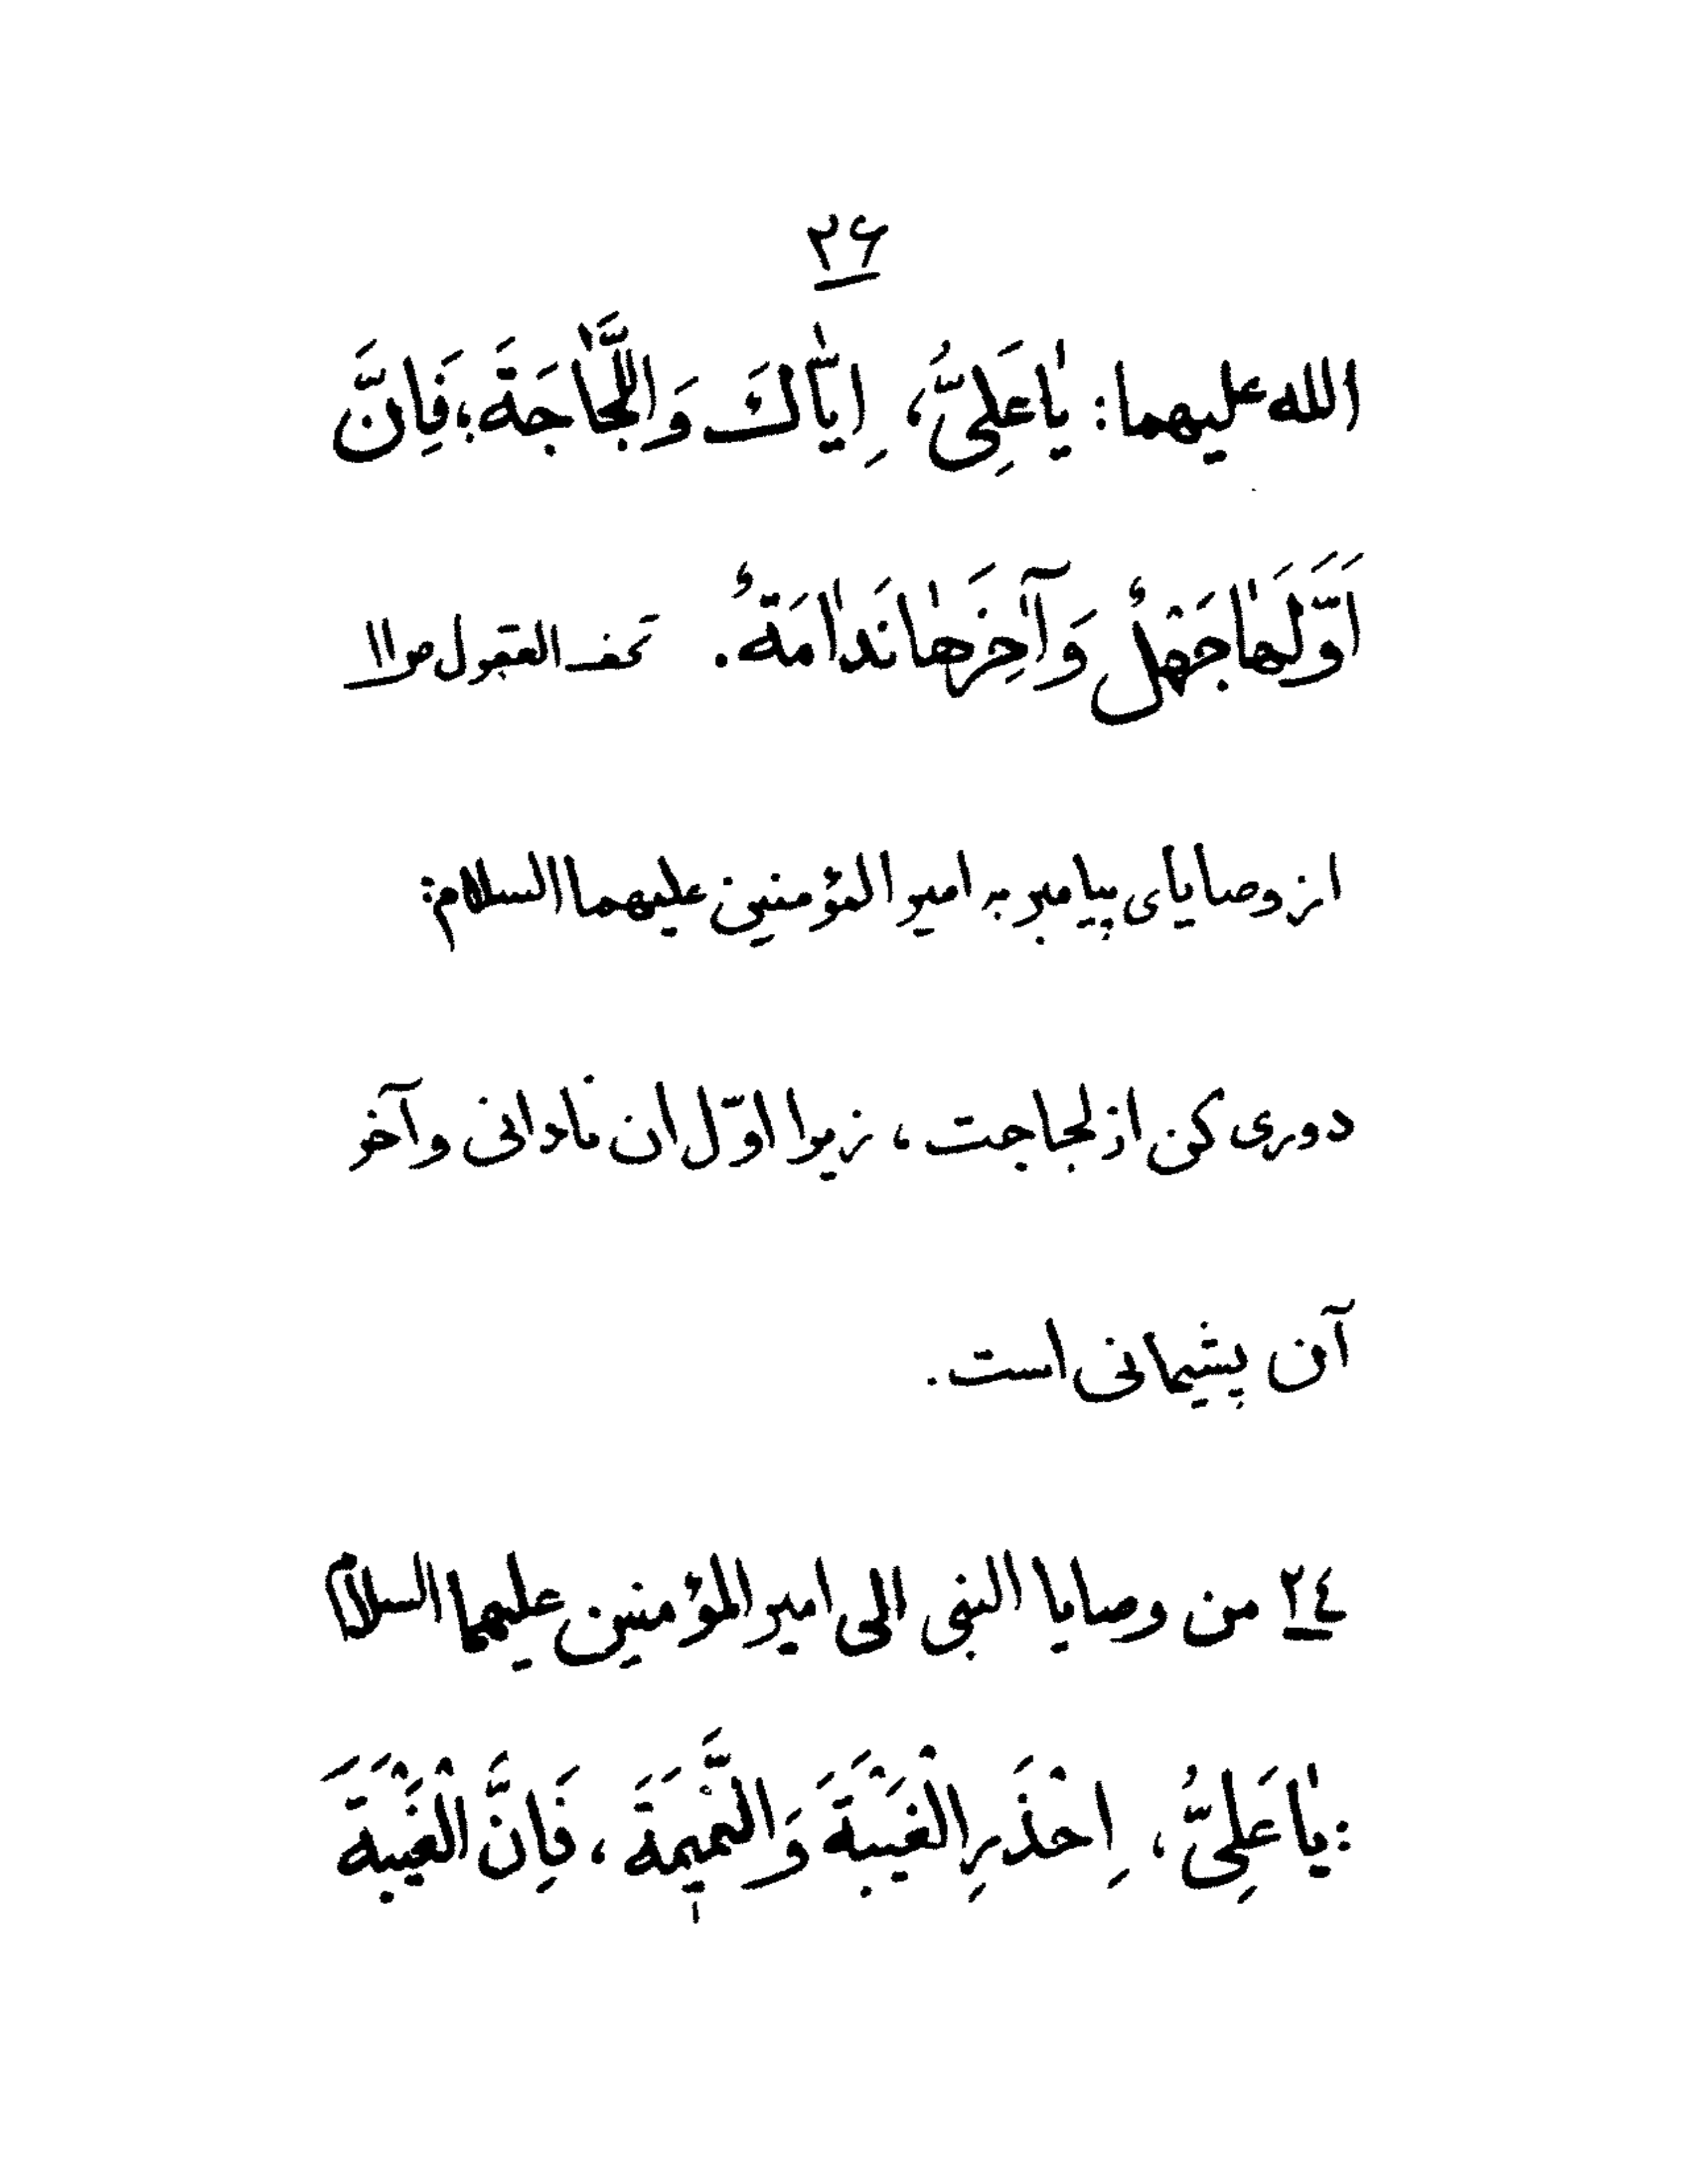 ۲۶
الله علیهما: یٰا عَلِیُّ، اِیّٰاكَ وَاللَّجٰاجَةَ؛ فَاِنَّ
اَوَّلَهٰا جَهْلٌ وَآخِرَهٰا نَدٰامَةٌ. تحف العقول ص۱۱
از وصایای پیامبر به امیر المؤمنین علیهما السلام:
دوری کن از لجاجت، زیرا اوّل ان نادانی و آخر
آن پشیمانی است.
٢٤ من وصایا النبی الی امیر المؤمنین علیهما السلام
: یٰا عَلِیُّ، اِحْذَرِ الْغَیْبَةَ وَالنَّمیمَةَ، فَاِنَّ الْغَیْبَةَ